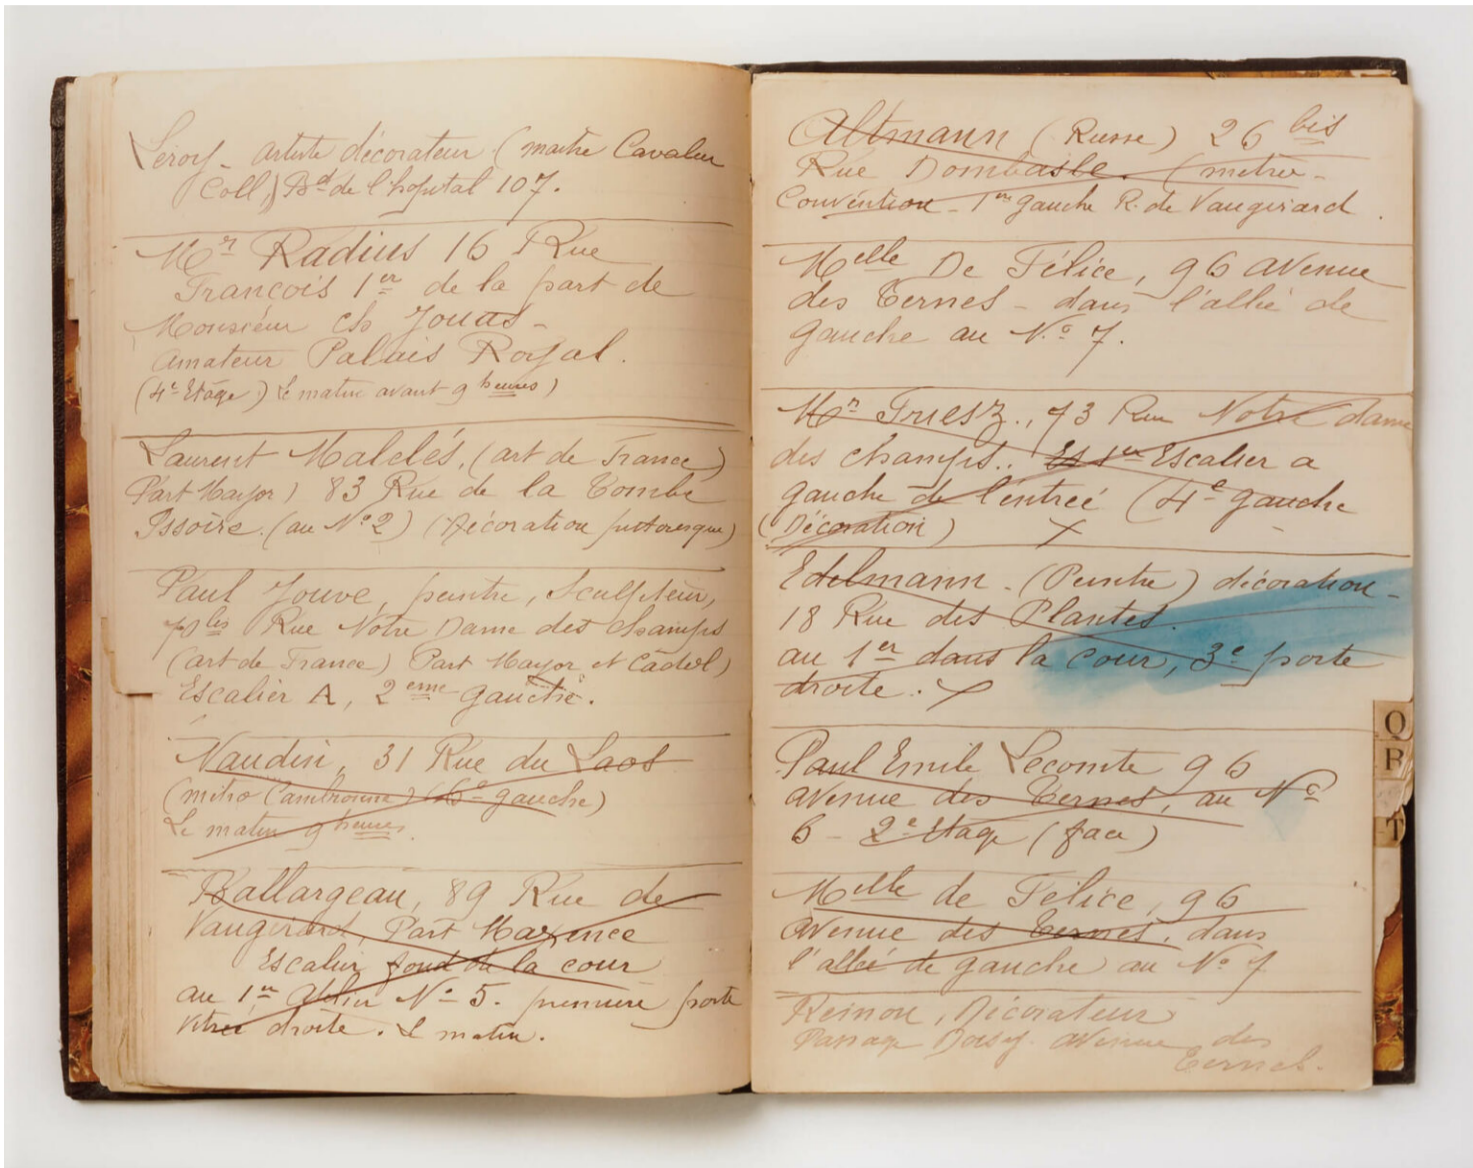 Leroy - artiste décorateur (maitre Cavalier
Coll) Bd de l'hopital 107.
Mr Radius 16 Rue
François 1er de la part de
Monsieur ch Jouas -
amateur Palais Royal.
(4e Etage) Le matin avant 9 heures)
Laurent Malclés, (art de France)
Part Mayor) 83 Rue de la Tombe
Issoire. (au No 2) (Décoration pittoresque)
Paul Jouve, peintre, Sculpteur,
bis Rue Notre Dame des champs
(art de France) Part Mayor et Cadel)
Escalier A, 2eme gauche.
Naudin, 31 Rue du Laos
(métro Cambronne) (6e gauche)
Le matin 9 heures.
Ballargeau, 89 Rue de
Vaugirard, Part Maxence
Escalier fond de la cour
au 1er Atelier No 5. premiere porte
vitreé droite. Le matin.
Altmann (Russe) 26 bis
Rue Dombasle. (métro -
Convention - 1ere gauche R. de Vaugirard.
Melle De Félice, 96 avenue
des Ternes - dans l'alleé de
gauche au No 7.
Mr Friesz., 73 Rue Notre dame
des champs.. 1er Escalier a
gauche de l'entreé (4e gauche
(Décoration) X
Edelmann - (Peintre) décoration -
18 Rue des Plantes.
au 1er dans la cour, 3e porte
droite. X
Paul Emile Lecomte 96
avenue des Ternes, au No
6 - 2e Etage (face)
Melle de Félice, 96
avenue des Ternes. dans
l'alleé de gauche au No 7
Décorateur
Passage Doisy. avenue des
Ternes.
Q
R
T